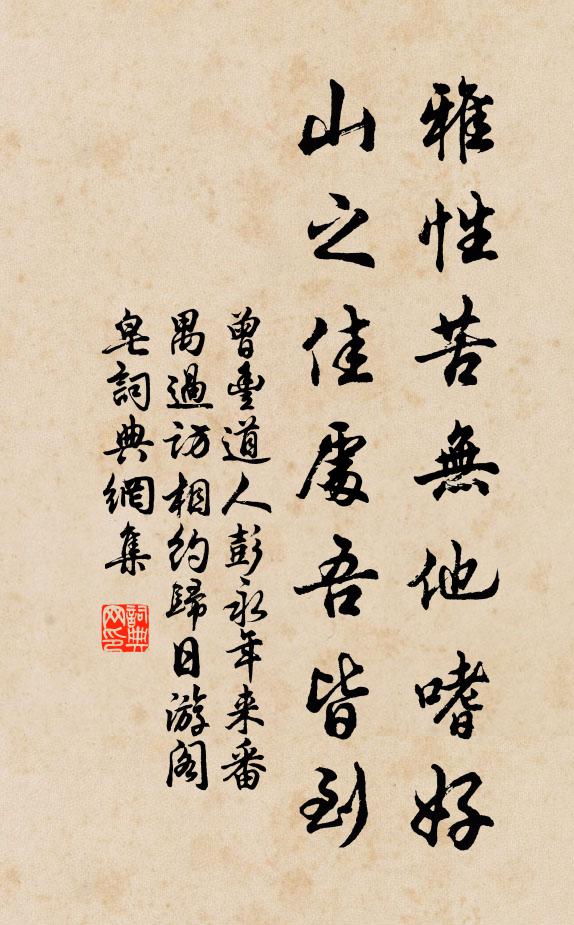 雅性苦無他嗜好
山之佳處吾皆到
曾豐道人彭永年来番
禺過訪相約歸日游閣
皂詞典網集
詞典
网印